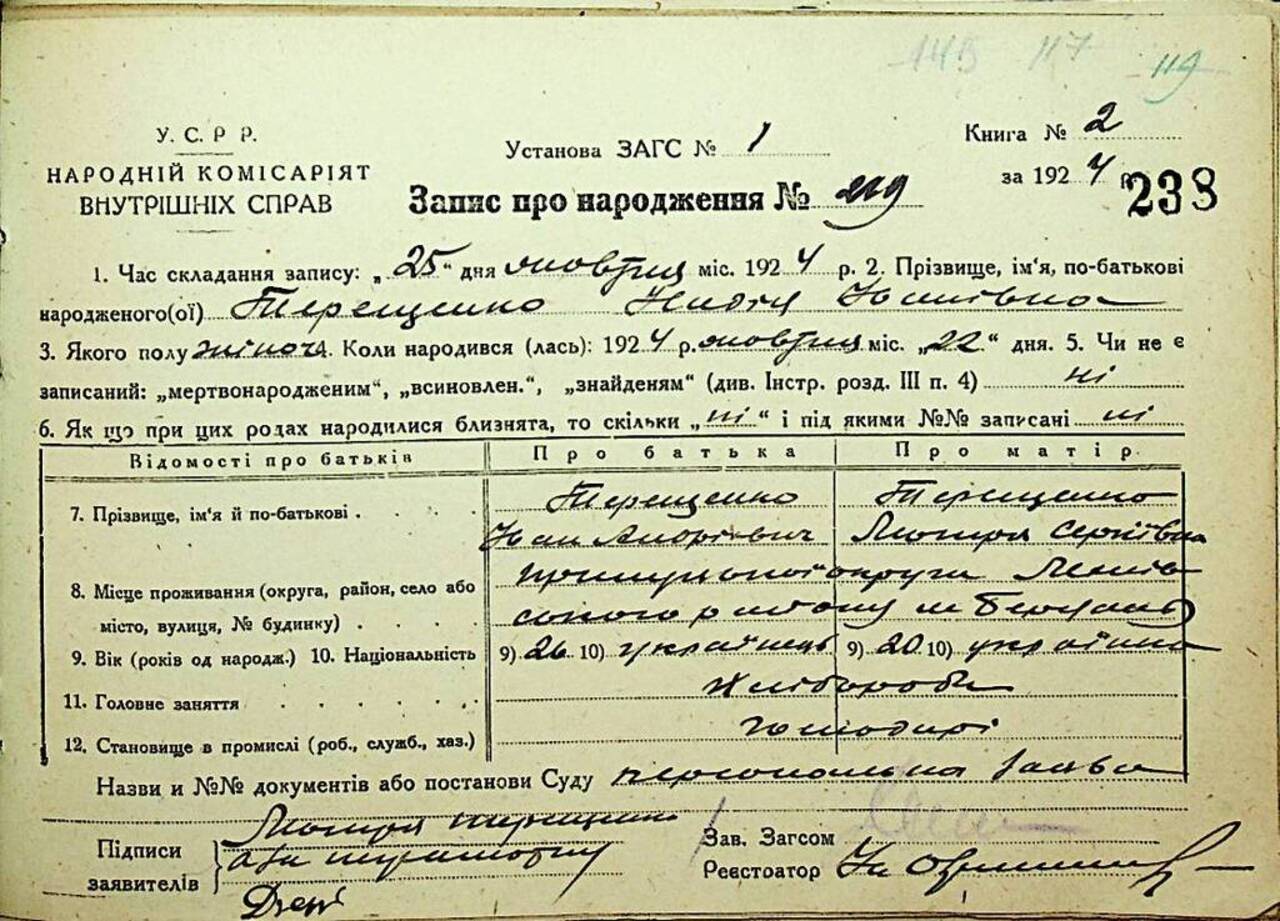 145 117 119
У. С. Р Р.
НАРОДНІЙ КОМІСАРІЯТ
ВНУТРІШНІХ СПРАВ
Установа ЗАГС № 1
Книга № 2
за 1924 р.
238
Запис про народження № 219
1. Час складання запису: „25“ дня жовтня міс. 1924 р. 2. Прізвище, ім'я, по-батькові
народженого(ої) Терещенко Надія Іванівна
3. Якого полу жіноч 4. Коли народився (лась): 1924 р. жовтня міс. „22“ дня. 5. Чи не є
записаний: „мертвонародженим“, „всиновлен.“, „знайденям“ (див. Інстр. розд. III п. 4) ні
6. Як що при цих родах народилися близнята, то скільки „ні“ і під якими №№ записані ні
Відомості про батьків Про батька Про матір
7. Прізвище, ім'я й по-батькові Терещенко Терещенко
Іван Андрієвич Мотря Сергіївна
8. Місце проживання (округа, район, село або
місто, вулиця, № будинку)
округи
району м
9. Вік (років од народж.) 10. Національність 9) 26 10) українець 9) 20 10) українка
11. Головне заняття Хлібороби
12. Становище в промислі (роб., служб., хаз.) Господарі
Назви и №№ документів або постанови Суду персональна заява
Підписи
заявителів
Мотря Терещенко
а за неграмотну
Зав. Загсом
Реєстоатор